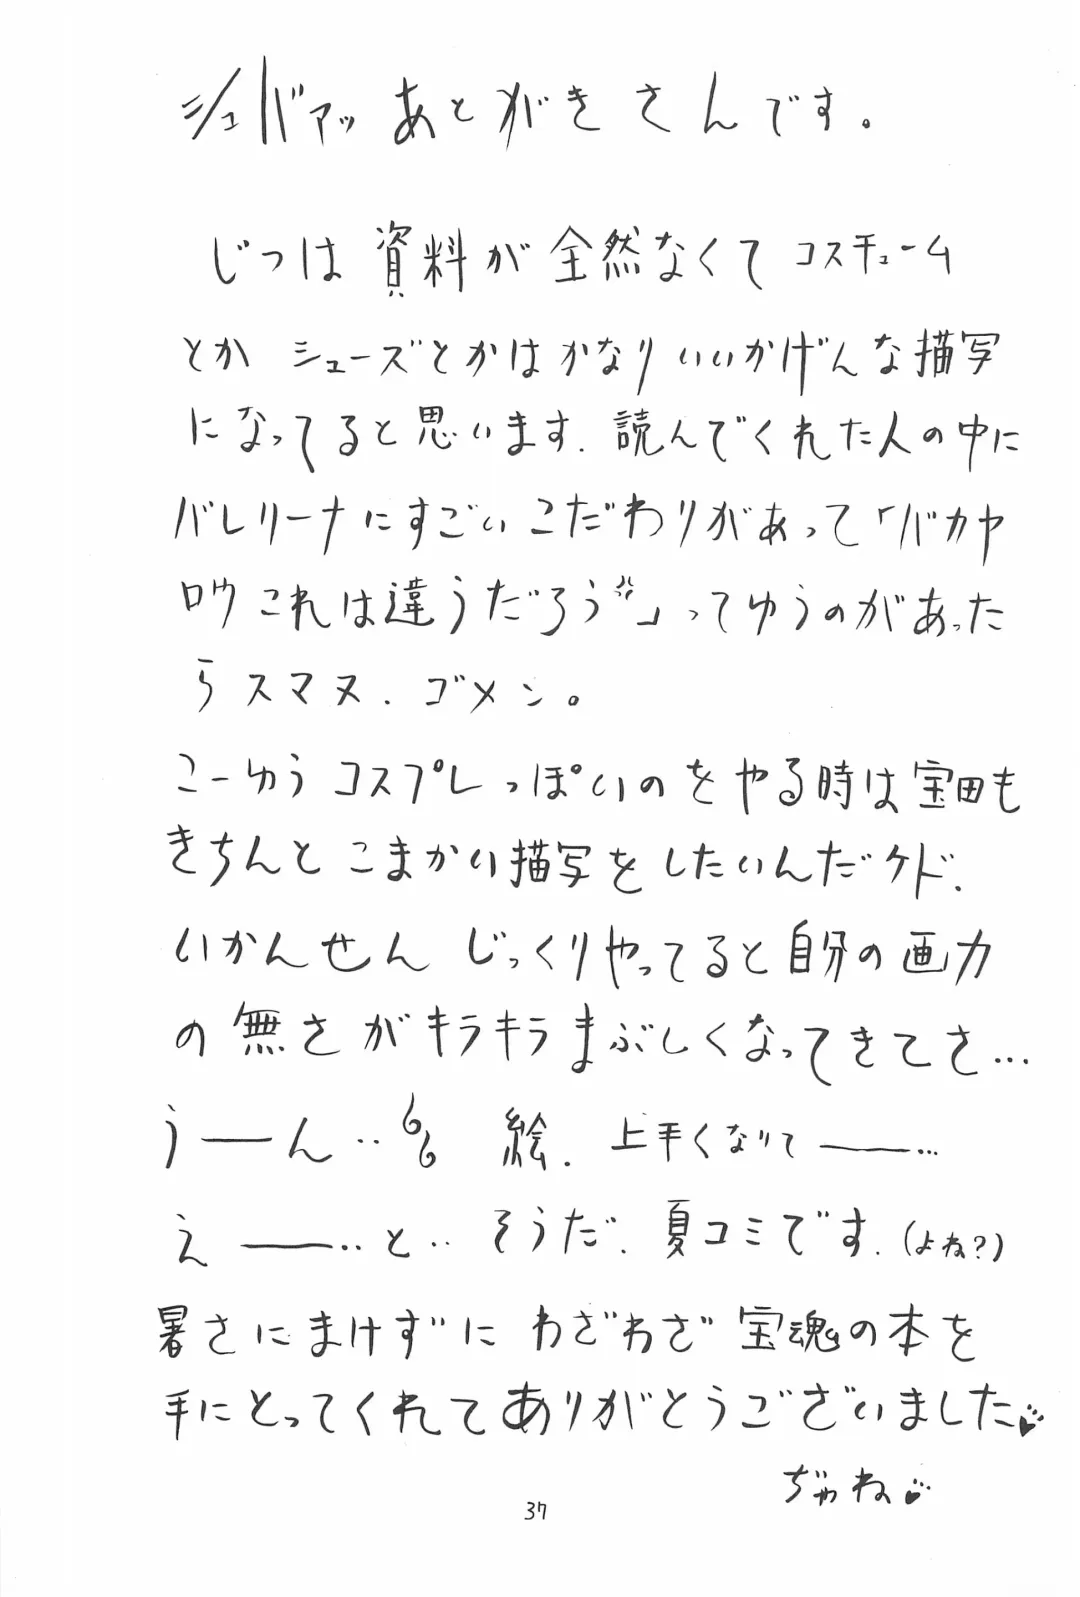 シュバァッ あとがきさんです。
じつは資料が全然なくてコスチューム
とか シューズとかはかなりいいかげんな描写
になってると思います. 読んでくれた人の中に
バレリーナにすごいこだわりがあって「バカヤ
ロウこれは違うだろう」ってゆうのがあった
らスマヌ. ゴメン。
こーゆうコスプレっぽいのをやる時は宝田も
きちんとこまかい描写をしたいんだケド.
いかんせんじっくりやってると自分の画力
の無さがキラキラまぶしくなってきてさ…
うーーん‥ 絵. 上手くなりてーー…
えーー‥と‥ そうだ. 夏コミです. (よね?)
暑さにまけずにわざわざ宝魂の本を
手にとってくれてありがとうございました♥
ぢゃね♥
37